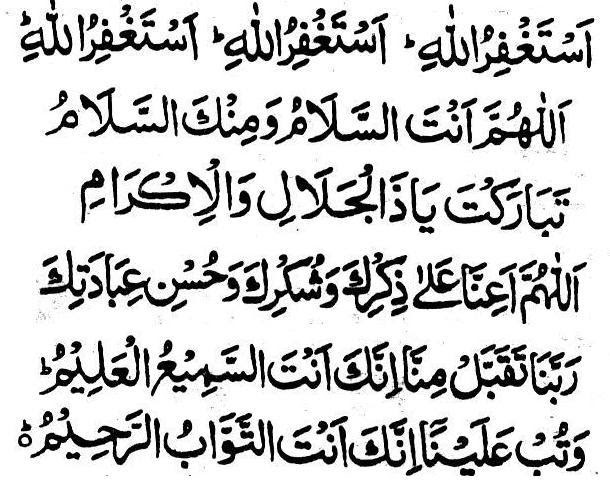 اَسْتَغْفِرُ اللهِ ؕ اَسْتَغْفِرُ اللهِ ؕ اَسْتَغْفِرُ اللهِ ؕ
اَللّٰهُمَّ اَنْتَ السَّلَامُ وَمِنْكَ السَّلَامُ
تَبَارَكْتَ يَاذَاالْجَلَالِ وَالْاِكْرَامِ
اَللّٰهُمَّ اَعِنَّا عَلٰى ذِكْرِكَ وَشُكْرِكَ وَحُسْنِ عِبَادَتِكَ
رَبَّنَا تَقَبَّلْ مِنَّا اِنَّكَ اَنْتَ السَّمِيْعُ الْعَلِيْمُ ؕ
وَتُبْ عَلَيْنَا اِنَّكَ اَنْتَ التَّوَّابُ الرَّحِيْمُ ؕ